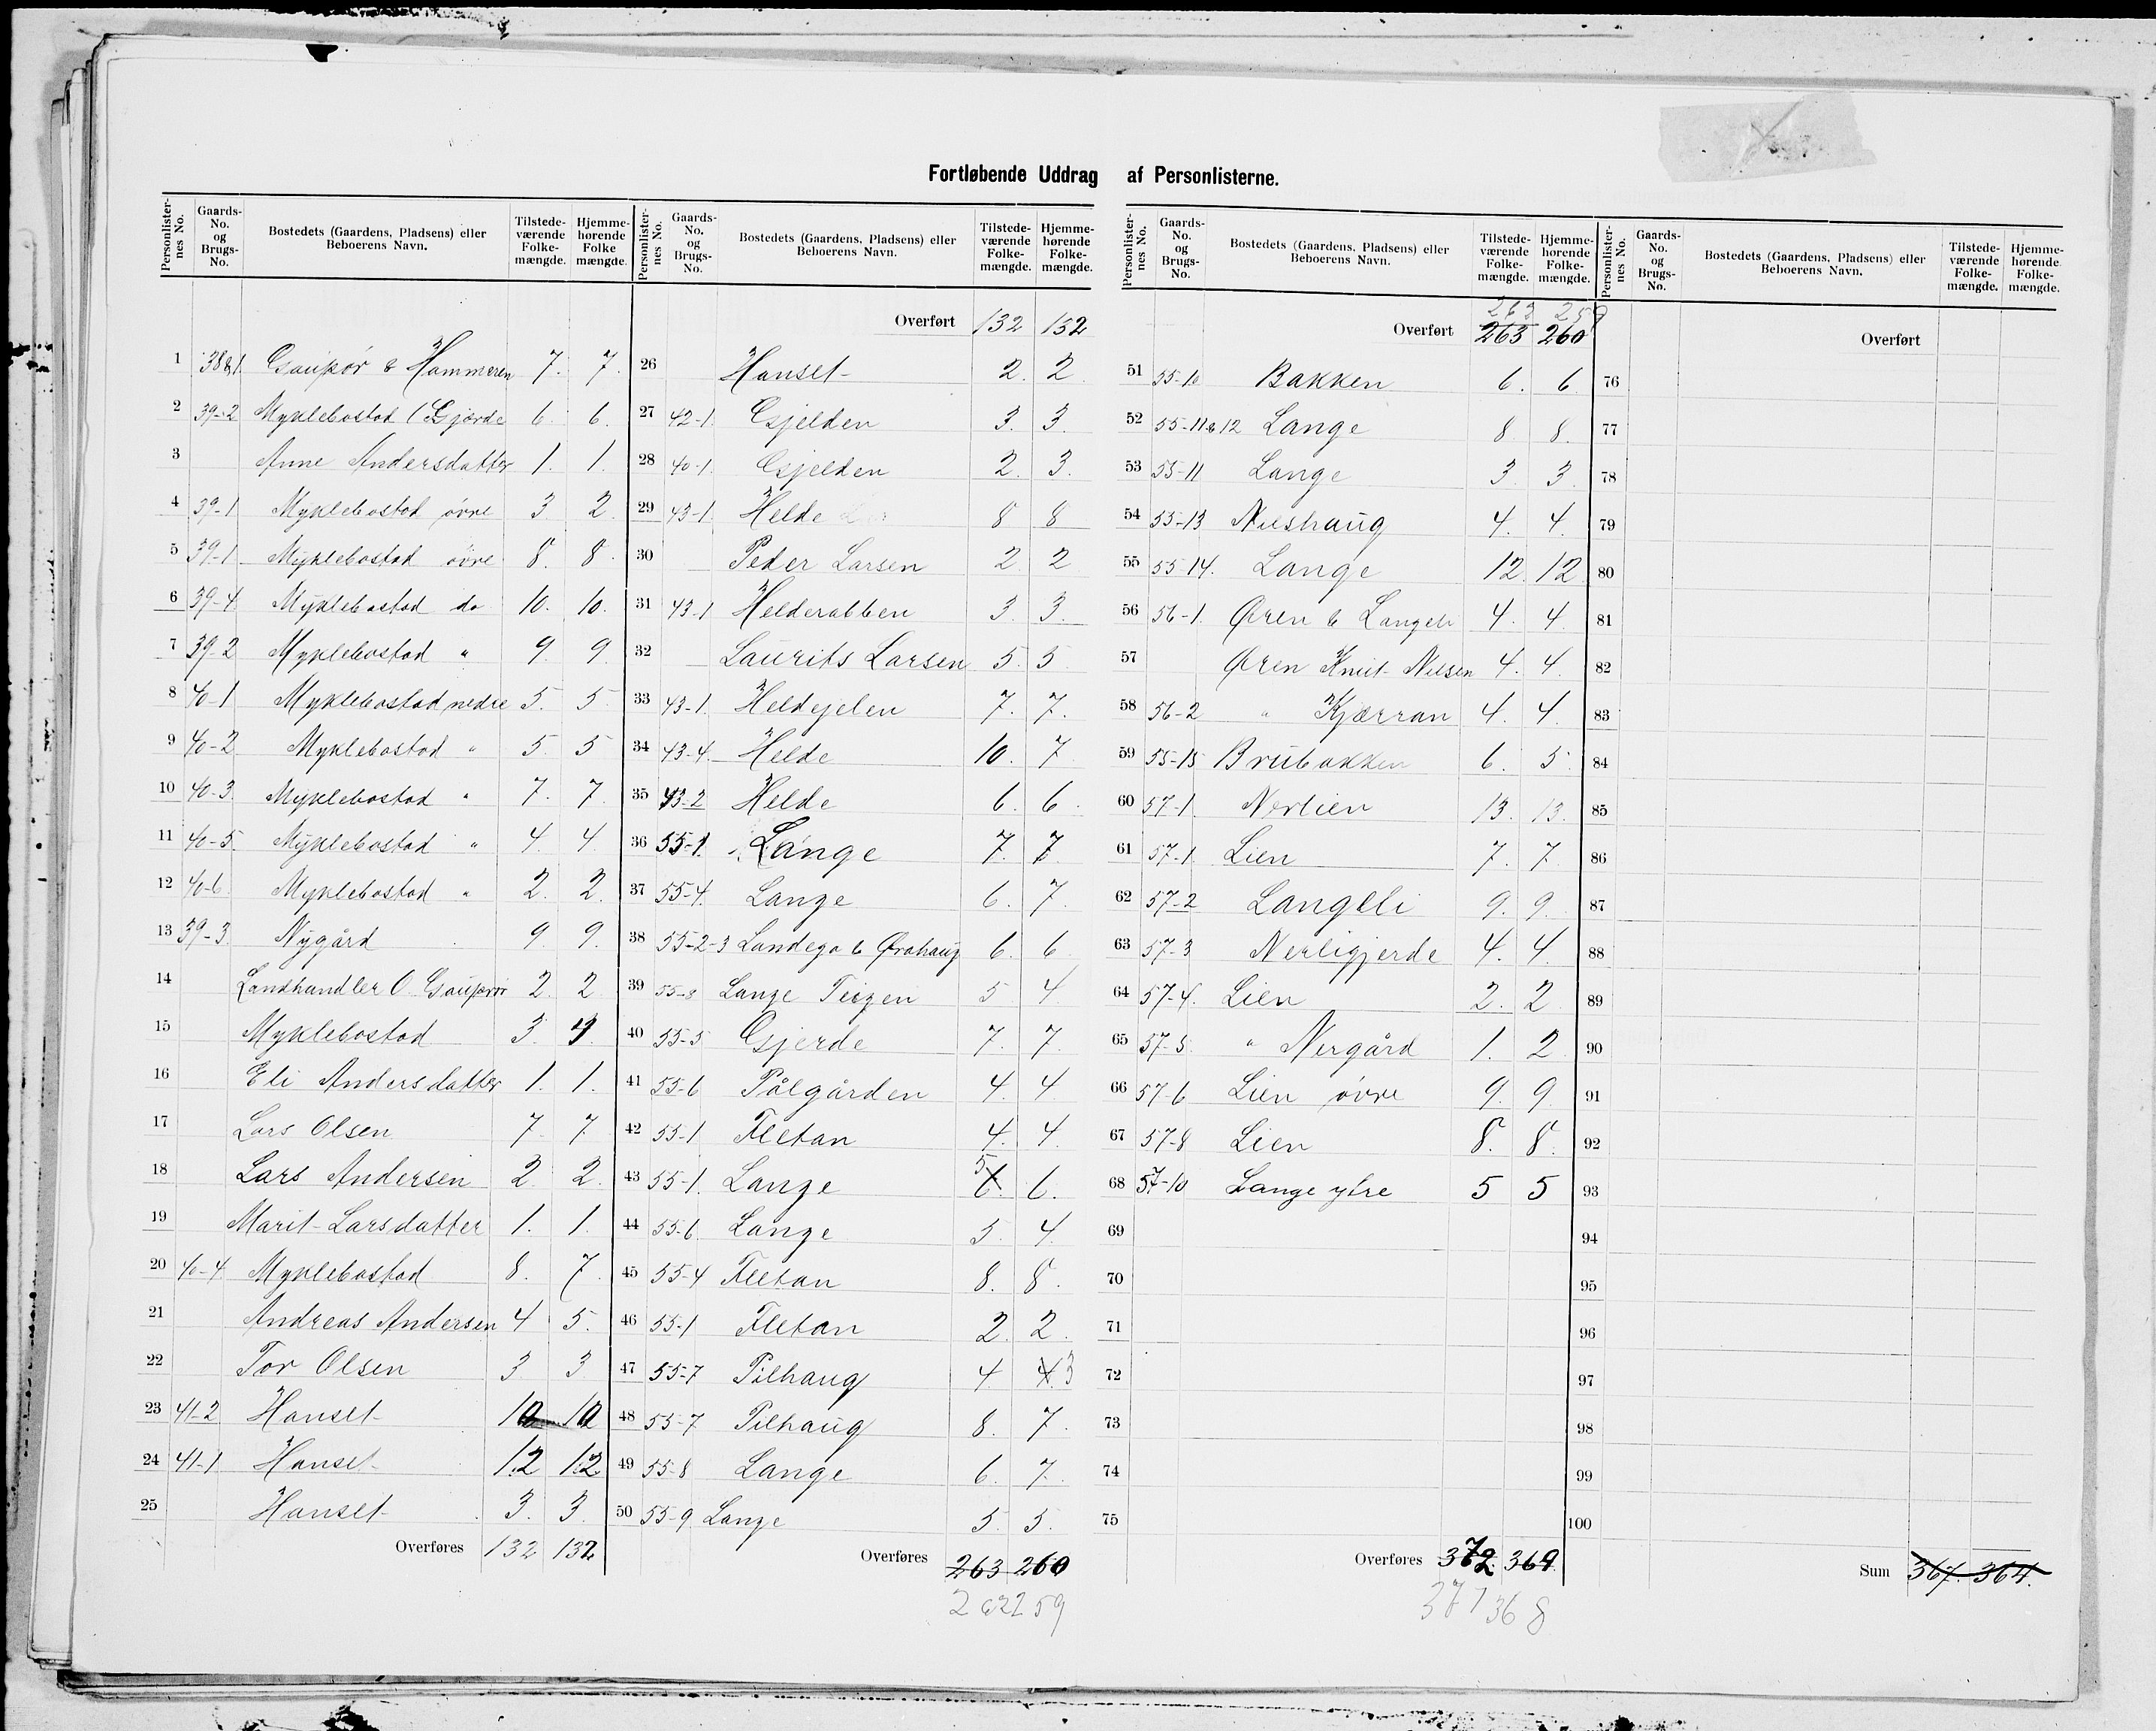 Fortløbende Uddrag af Personlisterne.
Personlisternes No. Gaards-No. og Brugs-No. Bostedets (Gaardens, Pladsens) eller Beboerens Navn. Tilstedeværende Folkemængde. Hjemmehørende Folkemængde.
1 38&1. Gaupør & Hammeren 7. 7.
2 39-2 Myklebostad (Gjerde 6. 6.
3 Anne Andersdatter 1. 1.
4 39-1 Myklebostad øvre 3 2
5 39-1 Myklebostad øvre 8. 8.
6 39-4 Myklebostad do 10. 10.
7 39-2 Myklebostad " 9. 9.
8 40-1 Myklebostad nedre 5. 5
9 40-2 Myklebostad " 5. 5
10 40-3. Myklebostad " 7. 7.
11 40-5. Myklebostad " 4. 4
12 40-6 Myklebostad " 2. 2.
13 39-3. Nygård 9. 9.
14 Landhandler O. Gauprør 2. 2
15 Myklebostad 3. 3.
16 Eli Andersdatter 1. 1.
17 Lars Olsen 7. 7.
18 Lars Andersen 2. 2.
19 Marit Larsdatter 1. 1.
20 40-4 Myklebostad 8. 7.
21 Andreas Andersen 4 5.
22 Tor Olsen 3 3
23 41-2 Hanset 10 10
24 41-1 Hanset 12 12
25 Hanset 3. 3.
Overføres 132 132
Personlisternes No. Gaards-No. og Brugs-No. Bostedets (Gaardens, Pladsens) eller Beboerens Navn. Tilstedeværende Folkemængde. Hjemmehørende Folkemængde.
Overført 132 132
26 Hanset 2. 2
27 42-1. Gjelden 3. 3.
28 40-1. Gjelden 2. 3.
29 43-1. Helde 8 8
30 Peder Larsen 2 2
31 43-1 Helderabben 3. 3.
32 Laurits Larsen 5. 5
33 43-1. Heldejelen 7. 7.
34 43-4. Helde 10. 7
35 43-2 Helde 6. 6.
36 55-1. Lange 7. 7
37 55-4. Lange 6. 7.
38 55-2-3 Landego & Ørahaug 6. 6
39 55-8 Lange Teigen 5 4
40 55-5 Gjerde 7. 7
41 55-6 Pålgården 4. 4
42 55-1 Fletan 4. 4.
43 55-1. Lange 6. 5 6.
44 55-6. Lange 5. 4.
45 55-4 Fletan 8. 8.
46 55-1 Fletan 2. 2.
47 55-7 Pilhaug 4. 4. 3
48 55-7 Pilhaug 8. 7.
49 55-8 Lange 6. 7.
50 55-9 Lange 5. 5.
Overføres 263 260
262 259
Personlisternes No. Gaards-No. og Brugs-No. Bostedets (Gaardens, Pladsens) eller Beboerens Navn. Tilstedeværende Folkemængde. Hjemmehørende Folkemængde.
263 259
Overført 263 260
51 55-10 Bakken 6. 6
52 55-11&12 Lange 8. 8.
53 55-11 Lange 3. 3.
54 55-13 Nilshaug 4. 4.
55 55-14. Lange 12. 12
56 56-1. Øren & Langeli 4. 4.
57 Øren Knut Nilsen 4. 4.
58 56-2 " Kjærran 4. 4.
59 55-15 Brubakken 6. 5.
60 57-1. Nerlien 13. 13.
61 57-1. Lien 7. 7.
62 57-2 Langeli 9. 9.
63 57-3 Nerligjerde 4. 4.
64 57-4. Lien 2. 2
65 57-5. " Nergård 1. 2
66 57-6 Lien øvre 9. 9.
67 57-8 Lien 8. 8.
68 57-10 Lange ytre 5 5
69
70
71
72
73
74
75
Overføres 372 369
371 368
Personlisternes No. Gaards-No. og Brugs-No. Bostedets (Gaardens, Pladsens) eller Beboerens Navn. Tilstedeværende Folkemængde. Hjemmehørende Folkemængde.
Overført
76
77
78
79
80
81
82
83
84
85
86
87
88
89
90
91
92
93
94
95
96
97
98
99
100
Sum 367. 364.